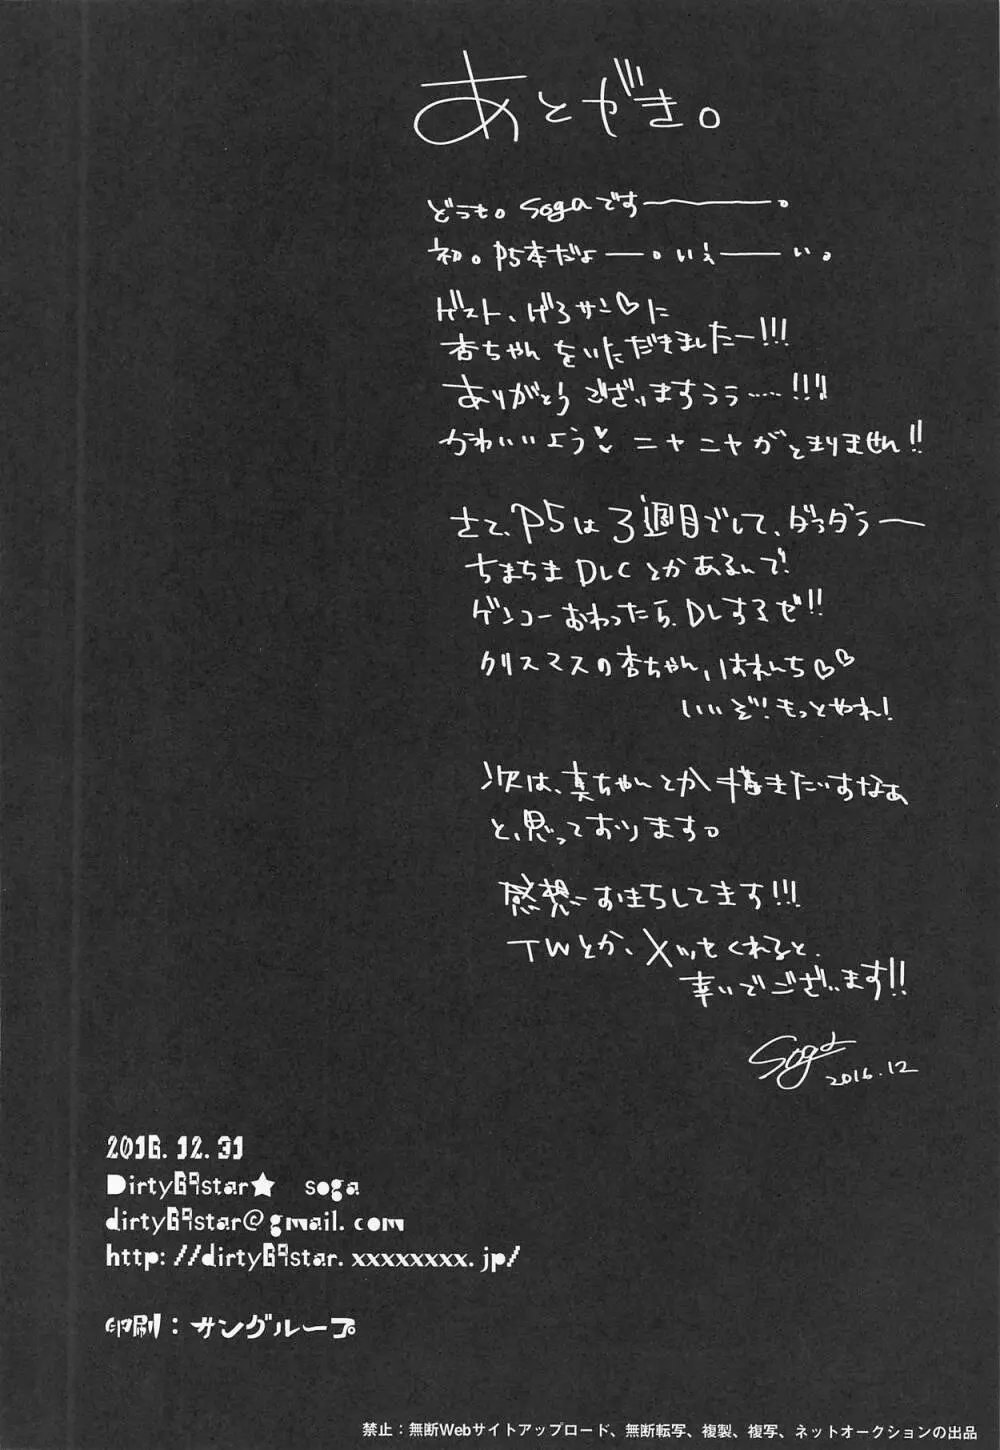 あとがき。
どうも。sogaですー。
初。P5本だよー。いぇーい。
ゲスト、げろサン♡に
杏ちゃんをいただきましたー!!!
ありがとうございますぅぅ……!!!
かわいいよう♡ニヤニヤがとまりません!!
さて、P5は3週目でして、ダラダラー
ちまちまDLCとかあるんで!
ゲンコーおわったら、DLするぜ!!
クリスマスの杏ちゃん、はれんち♡♡
いいぞ!もっとやれ!
次は、真ちゃんとか描きたいすなあ
と、思っております。
感想おまちしてます!!!
TWとか、メッセくれると、
幸いでございます!!
Soga
2016.12
2016.12.31
Dirty69star★ soga
dirty69star@gmail.com
http://dirty69star.xxxxxxxx.jp/
印刷：サングループ
禁止：無断Webサイトアップロード、無断転写、複製、複写、ネットオークションの出品